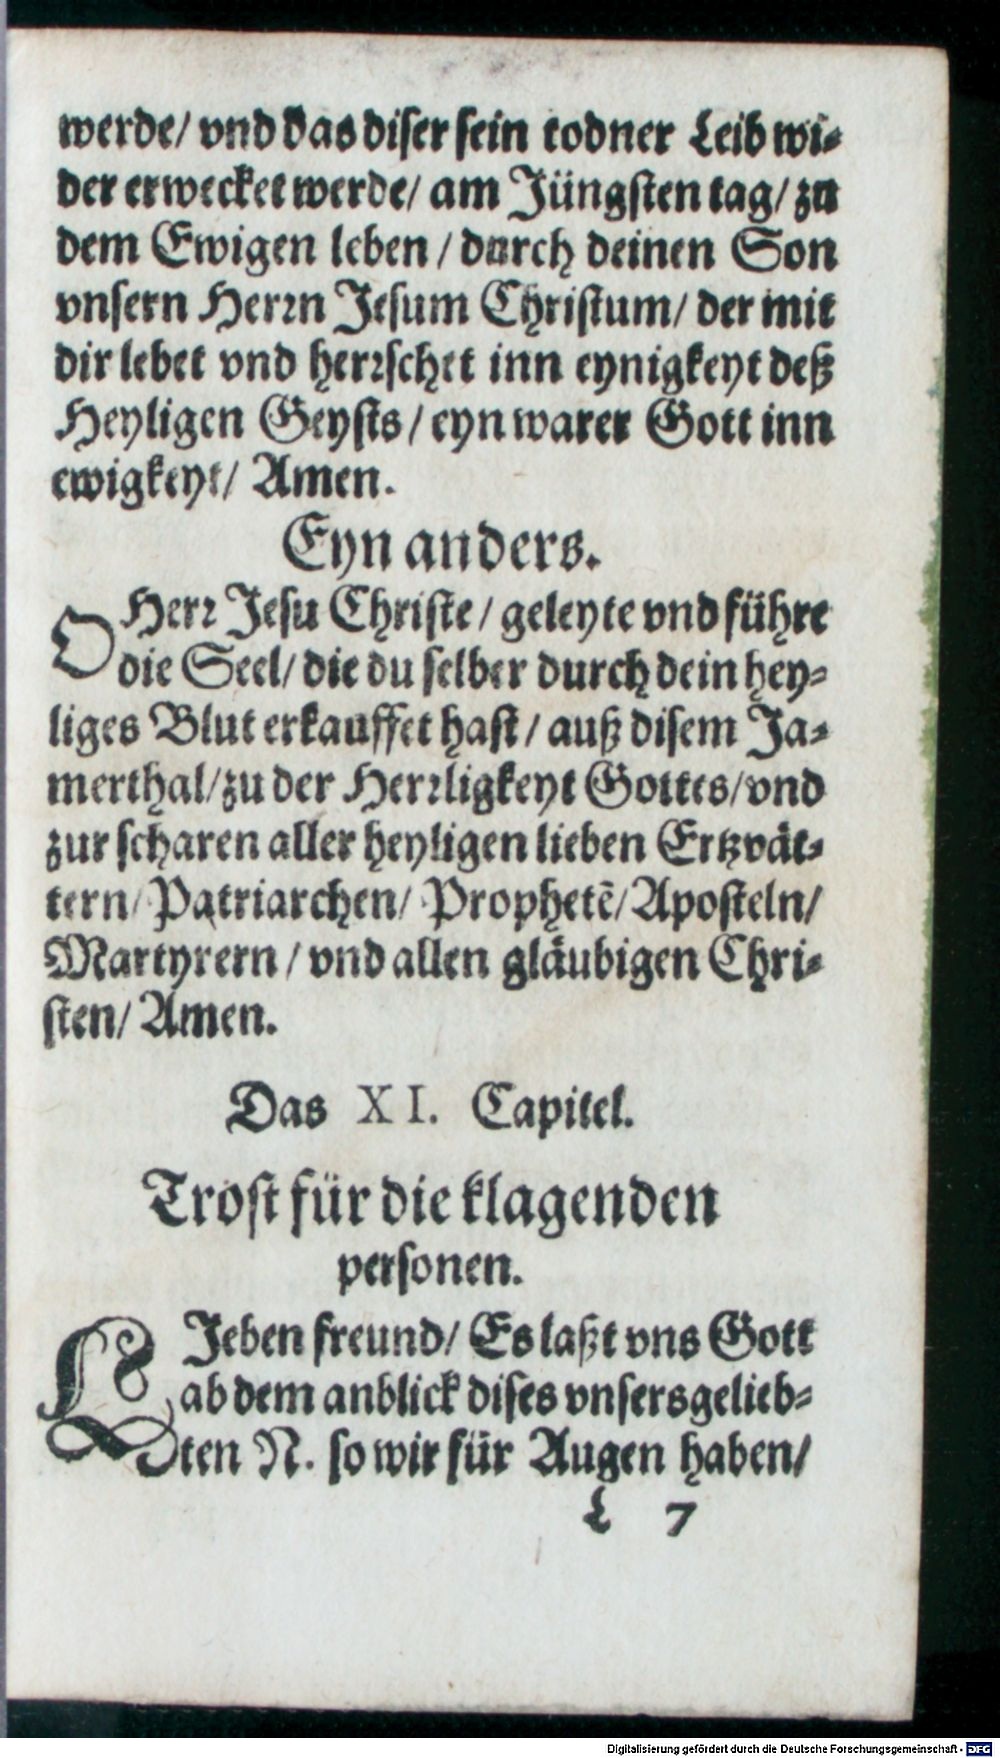 werde/ vnd das diser sein todner Leib wi-
der erwecket werde/ am Jüngsten tag/ zu
dem Ewigen leben / durch deinen Son
vnsern Herrn Jesum Christum/ der mit
dir lebet vnd herrschet inn eynigkeyt deß
Heyligen Geysts / eyn warer Gott inn
ewigkeyt/ Amen.
Eyn anders.
O Herr Jesu Christe / geleyte vnd führe
die Seel/ die du selber durch dein hey-
liges Blut erkauffet hast / auß disem Ja-
merthal/ zu der Herrligkeyt Gottes/ vnd
zur scharen aller heyligen lieben Ertzvät-
tern/ Patriarchen/ Prophetē/ Aposteln/
Martyrern / vnd allen gläubigen Chri-
sten/ Amen.
Das XI. Capitel.
Trost für die klagenden
personen.
LJeben freund/ Es laßt vns Gott
ab dem anblick dises vnsers gelieb-
ten N. so wir für Augen haben/
L 7
Digitalisierung gefördert durch die Deutsche Forschungsgemeinschaft - DFG